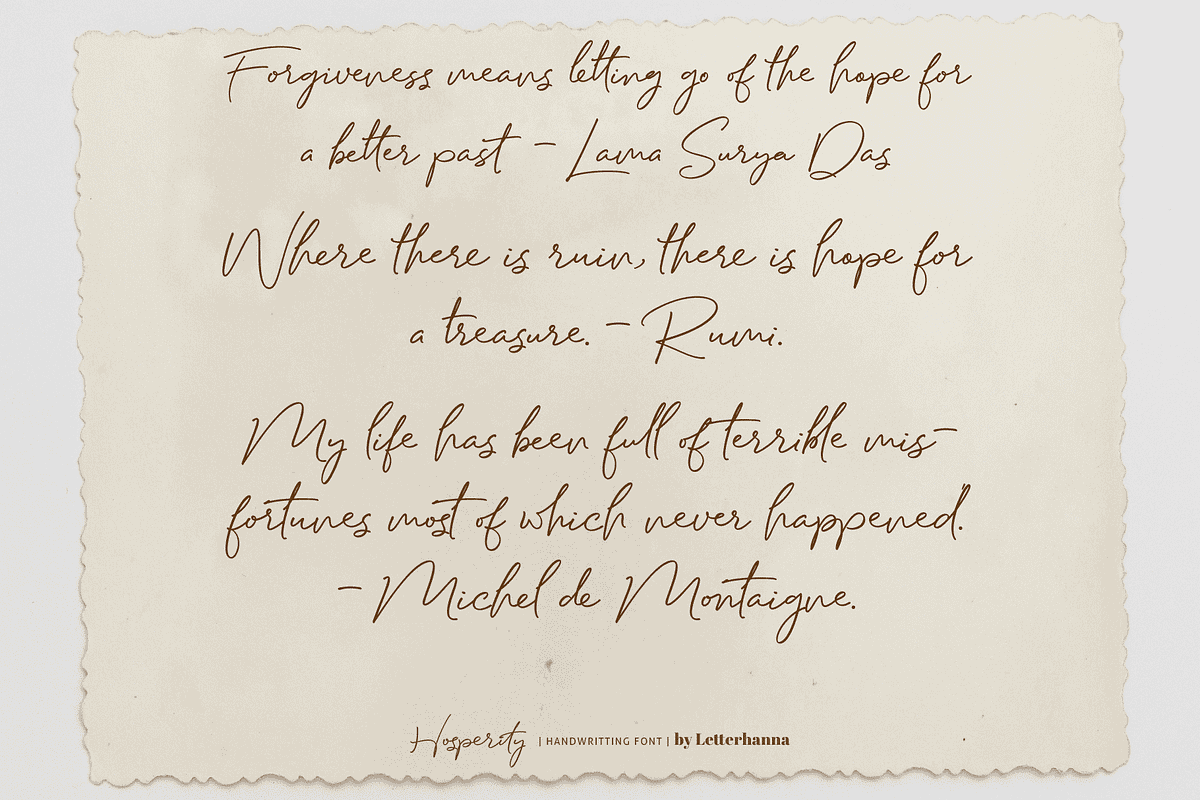 Forgiveness means letting go of the hope for
a better past - Lama Surya Das
Where there is ruin, there is hope for
a treasure. - Rumi.
My life has been full of terrible mis-
fortunes most of which never happened.
- Michel de Montaigne.
Hosperity | HANDWRITTING FONT | by Letterhanna